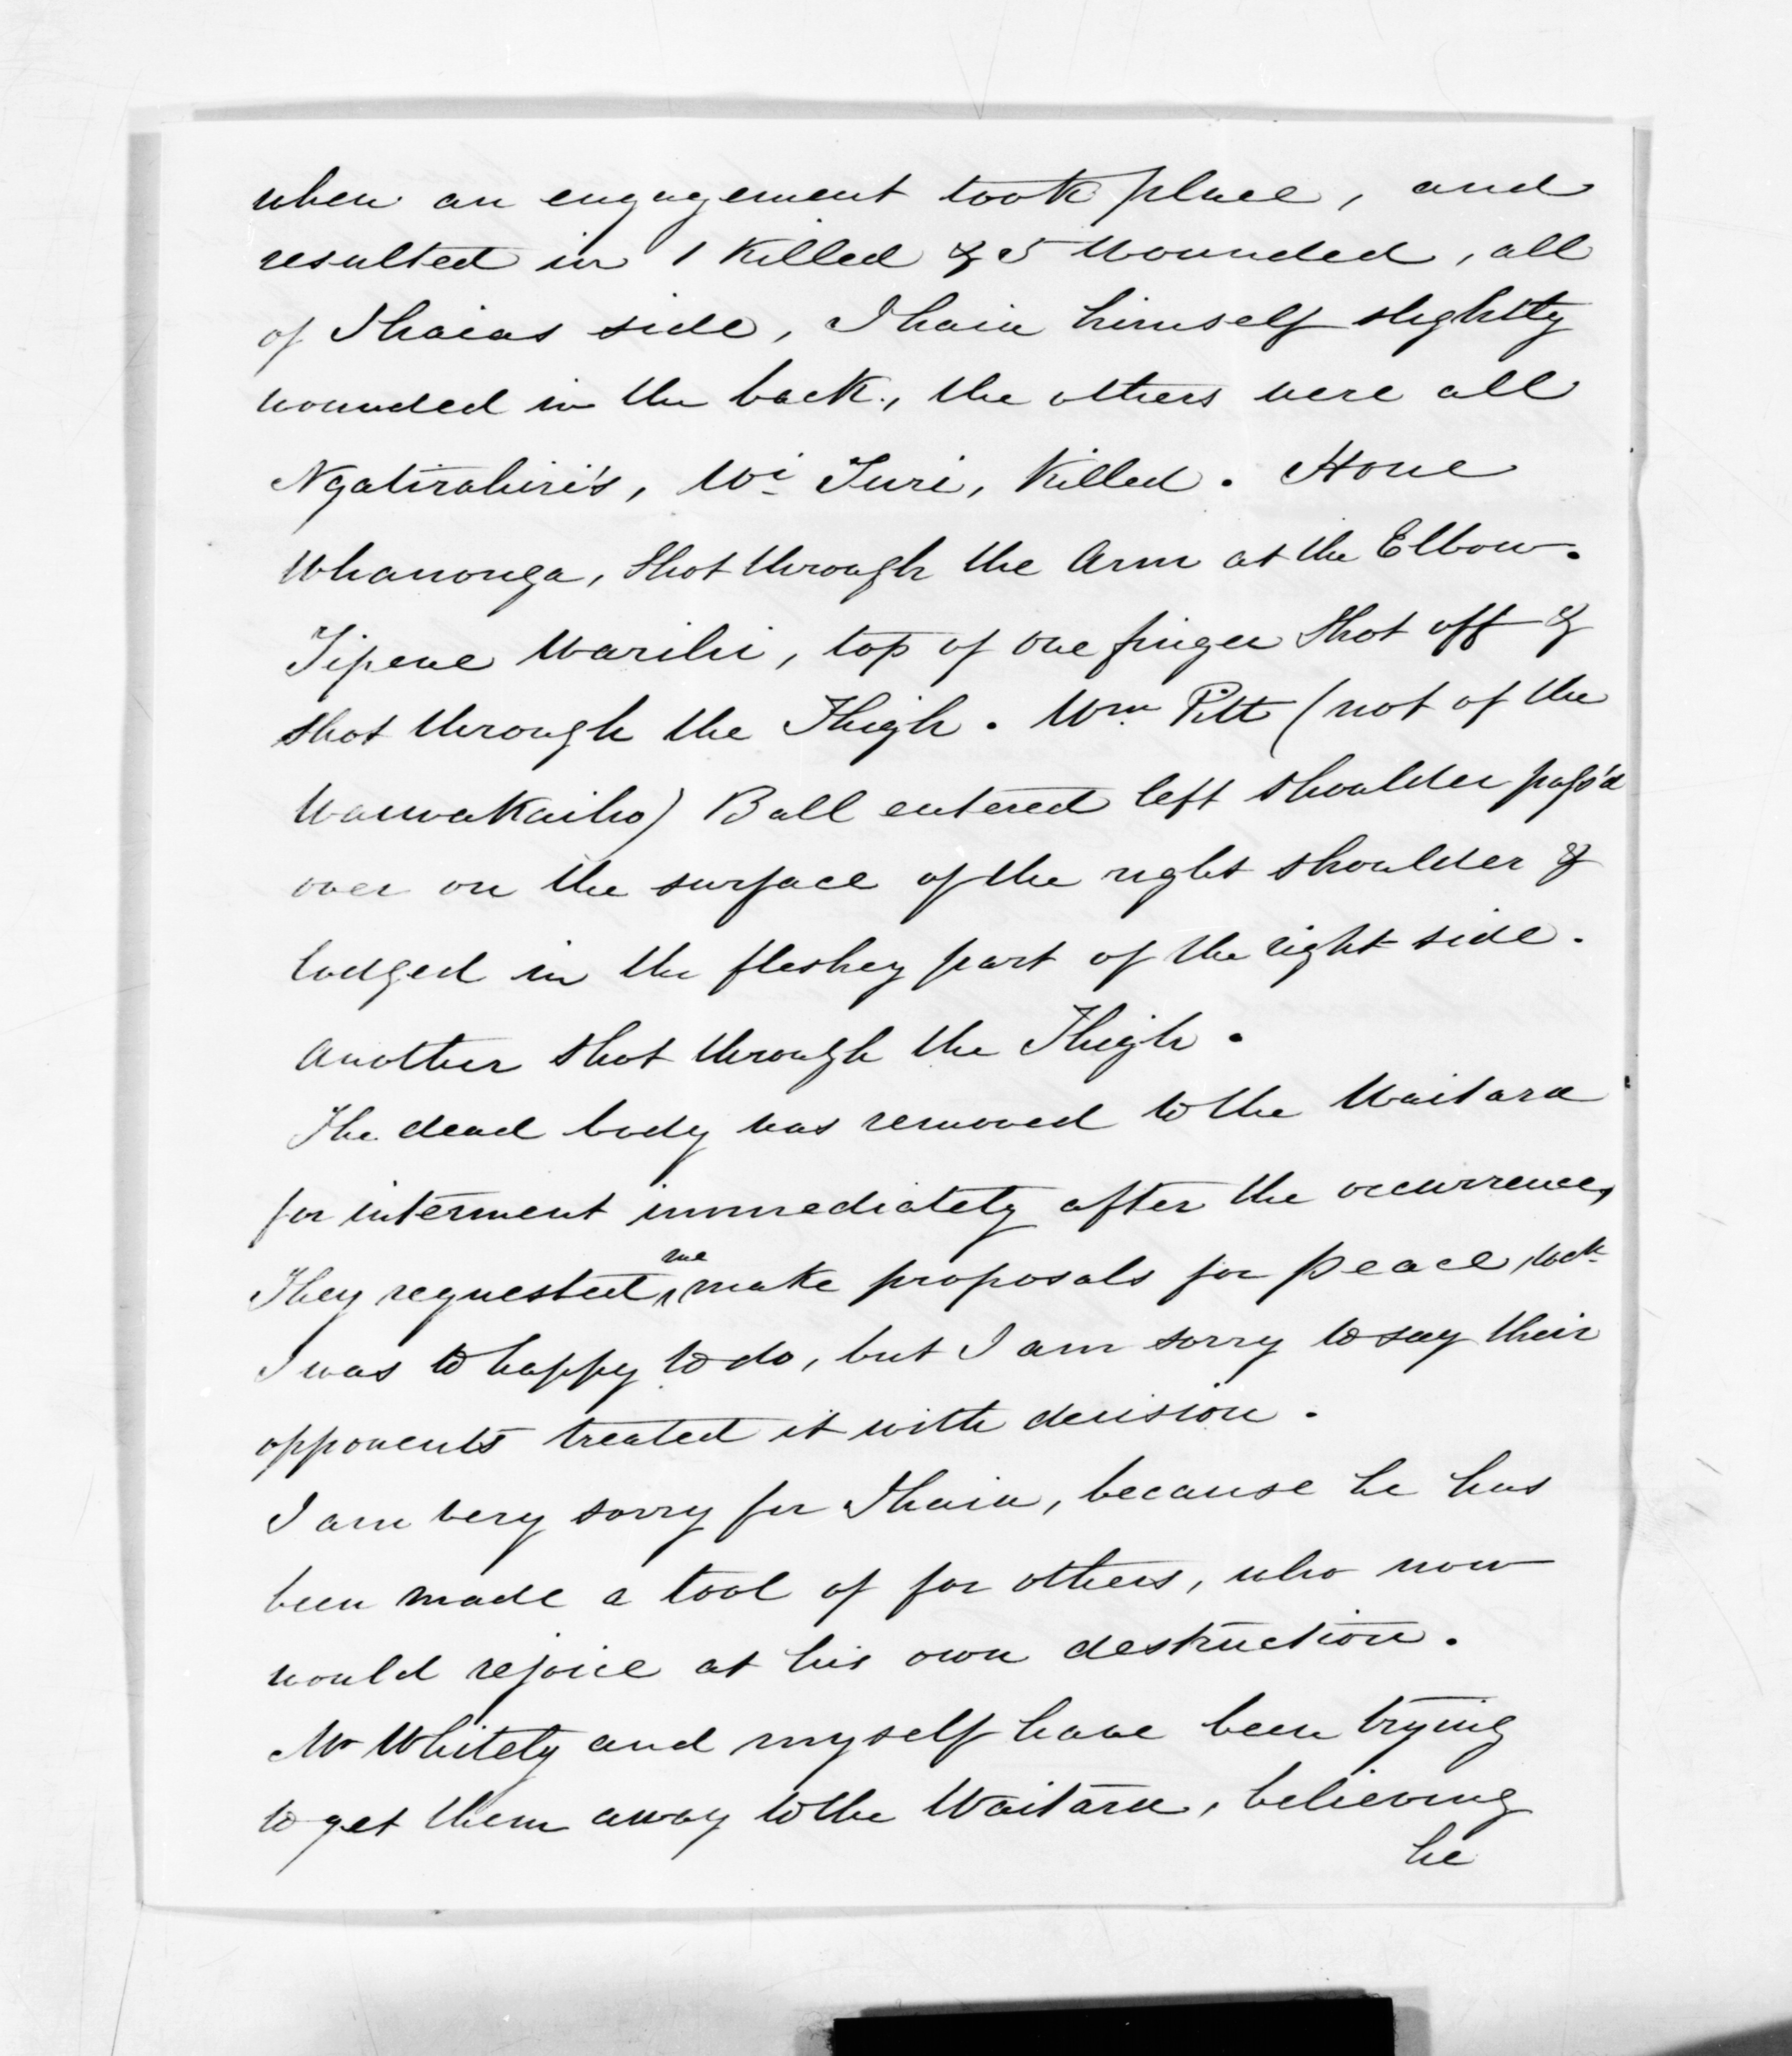 when an engagement took place, and
resulted in 1 Killed & 5 Wounded, all
of Ihaias side, Ihaia himself slightly
wounded in the back, the others were all
Ngatirahiri's, Wi Turi, Killed. Hone
Whanonga, Shot through the Arm at the Elbow.
Tipene Warihi, top of one finger Shot off &
shot through the Thigh. Wm Pitt (not of the
Waiwakaiho) Ball entered left shoulder pass'd
over on the surface of the right shoulder &
lodged in the fleshey part of the right side.
Another shot through the Thigh.
The dead body was removed to the Waitara
for interment immediately after the occurrence,
They requested me make proposals for peace, wch
I was to happy to do, but I am sorry to say their
opponents treated it with derision.
I am very sorry for Ihaia, because he has
been made a tool of for others, who now
would rejoice at his own destruction.
Mr Whitely and myself have been trying
to get them away to the Waitara, believing
he